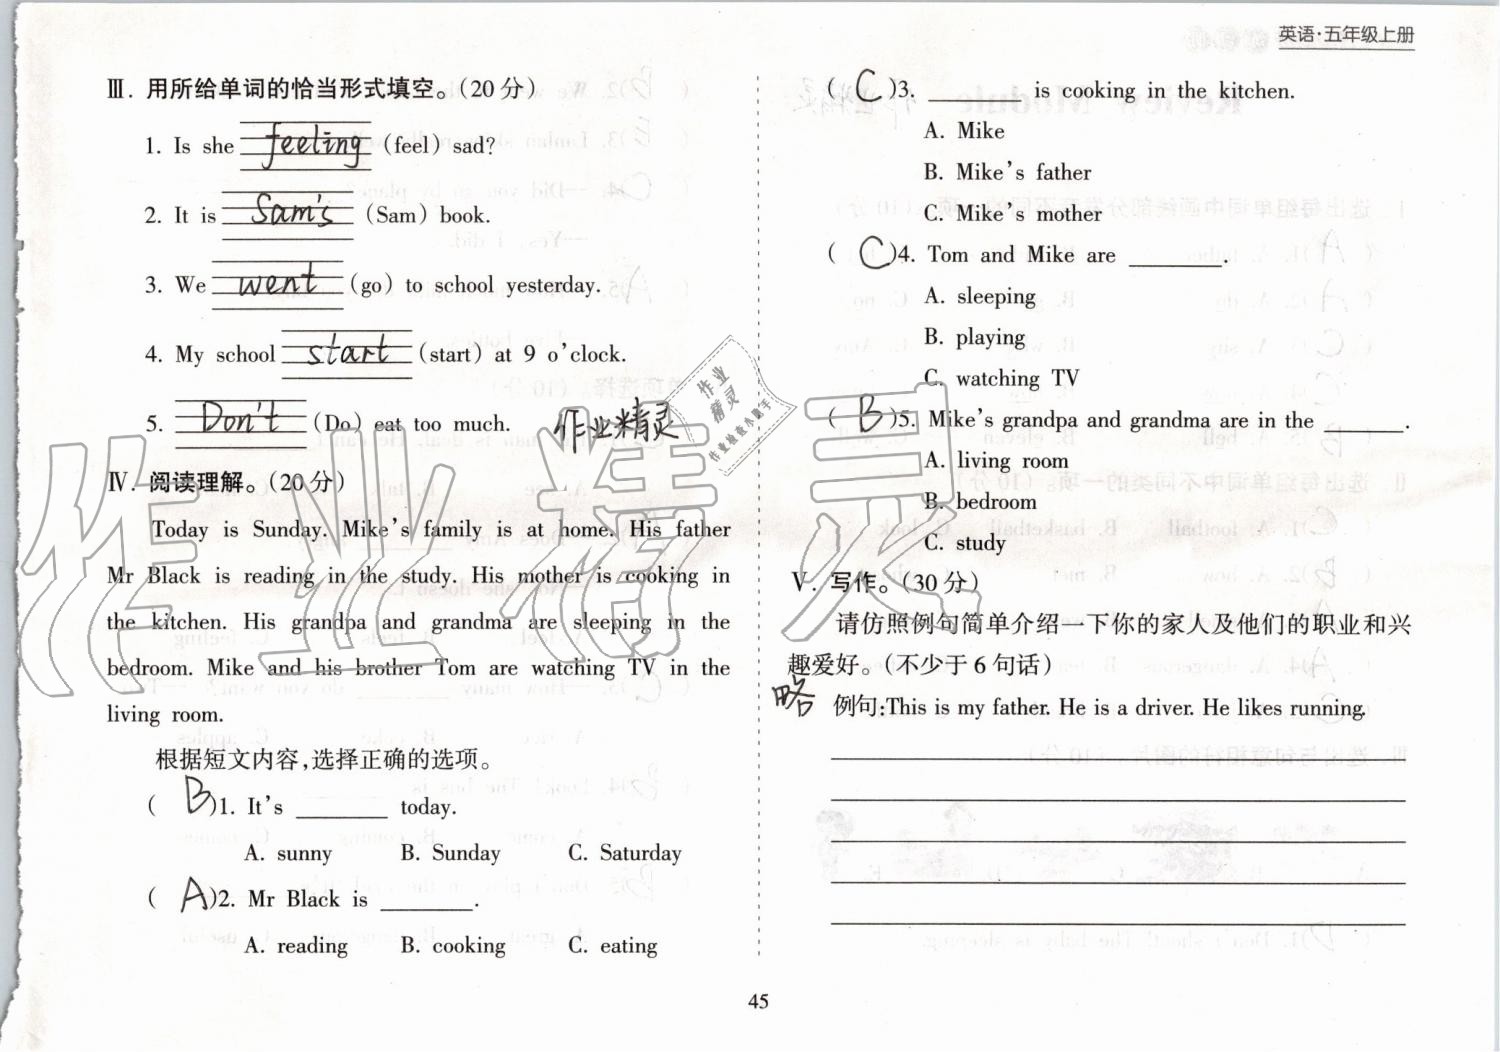 英语·五年级上册
Ⅲ. 用所给单词的恰当形式填空。(20分)
1. Is she feeling (feel) sad?
2. It is Sam's (Sam) book.
3. We went (go) to school yesterday.
4. My school start (start) at 9 o'clock.
5. Don't (Do) eat too much. 作业精灵
Ⅳ. 阅读理解。(20分)
Today is Sunday. Mike's family is at home. His father
Mr Black is reading in the study. His mother is cooking in
the kitchen. His grandpa and grandma are sleeping in the
bedroom. Mike and his brother Tom are watching TV in the
living room.
根据短文内容,选择正确的选项。
( B )1. It's ________ today.
A. sunny B. Sunday C. Saturday
( A )2. Mr Black is ________.
A. reading B. cooking C. eating
( C )3. ________ is cooking in the kitchen.
A. Mike
B. Mike's father
C. Mike's mother
( C )4. Tom and Mike are ________.
A. sleeping
B. playing
C. watching TV
( B )5. Mike's grandpa and grandma are in the ________.
A. living room
B. bedroom
C. study
Ⅴ. 写作。(30分)
请仿照例句简单介绍一下你的家人及他们的职业和兴
趣爱好。(不少于6句话)
略 例句:This is my father. He is a driver. He likes running.
作业精灵
作业
精灵
45